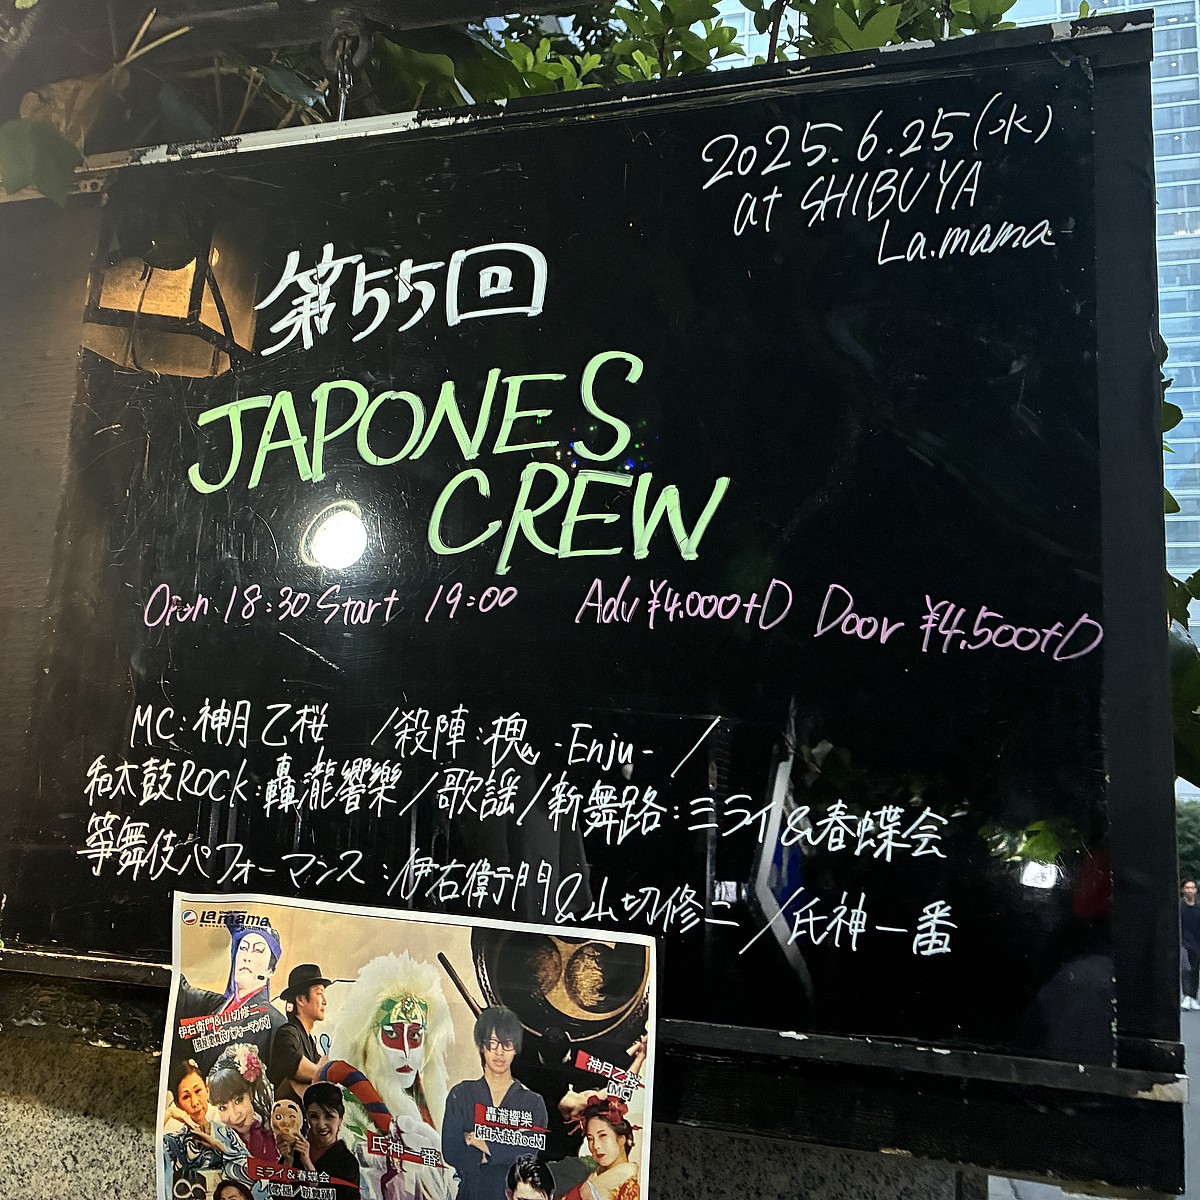 2025.6.25(水)
at SHIBUYA
La.mama
第55回
JAPONES
CREW
Open 18:30 Start 19:00 Adv ¥4.000+D Door ¥4.500+D
MC:神月乙桜 /殺陣:槐 -Enju- /
和太鼓ROCK:轟瀧響樂/歌謡/新舞踊:ミライ&春蝶会
箏舞伎パフォーマンス:伊右衛門&山切修二/氏神一番
La.mama
伊右衛門&山切修二
神月乙桜
【MC】
轟瀧響樂
【和太鼓Rock】
氏神一番
ミライ&春蝶会
【歌謡/新舞踊】